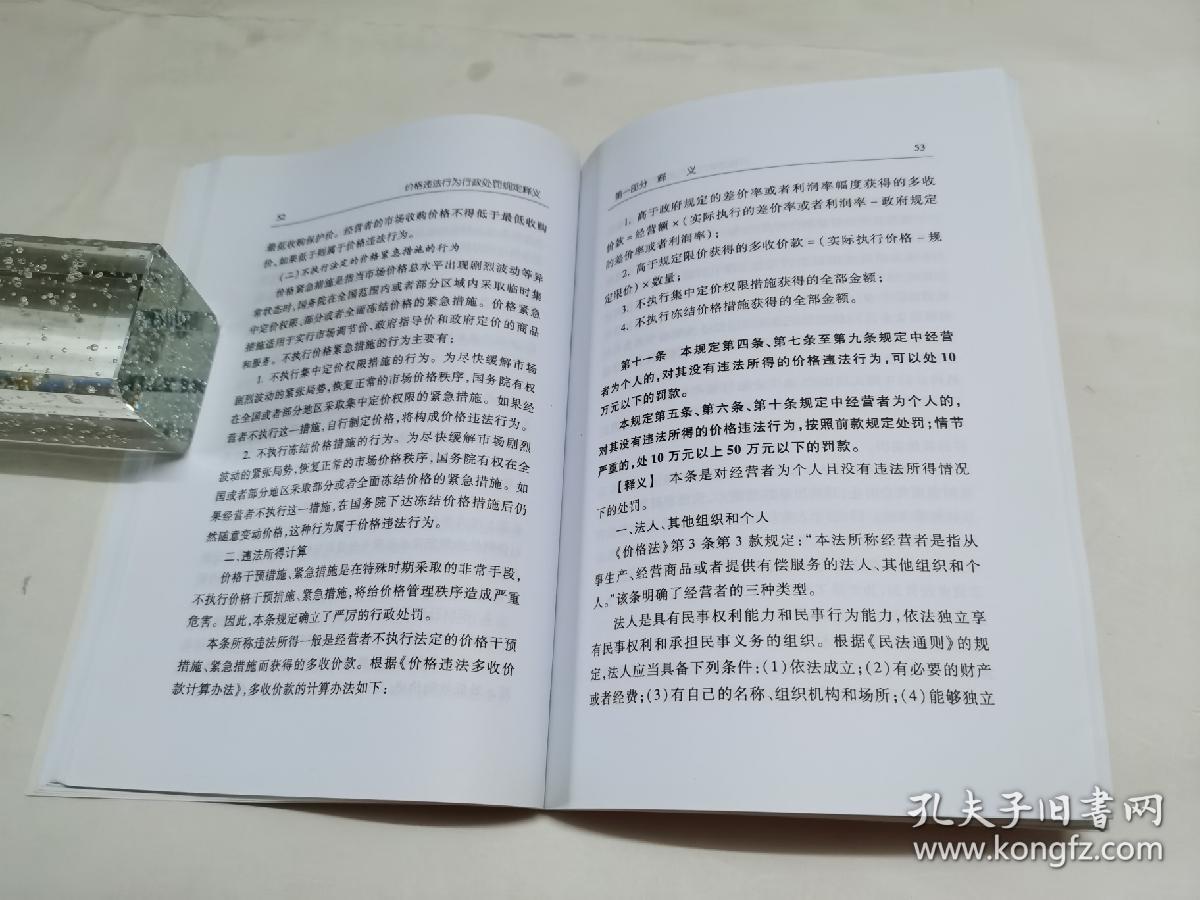 52
价格违法行为行政处罚规定释义
最低收购保护价。经营者的市场收购价格不得低于最低收购
价、如果低于则属于价格违法行为。
(二)不执行法定的价格紧急措施的行为
价格紧急措施是指当市场价格总水平出现剧烈波动等异
常状态时,国务院在全国范围内或者部分区域内采取临时集
中定价权限、部分或者全面冻结价格的紧急措施。价格紧急
措施适用于实行市场调节价、政府指导价和政府定价的商品
和服务。不执行价格紧急措施的行为主要有:
1. 不执行集中定价权限措施的行为。为尽快缓解市场
剧烈波动的紧张局势,恢复正常的市场价格秩序,国务院有权
在全国或者部分地区采取集中定价权限的紧急措施。如果经
营者不执行这一措施,自行制定价格,将构成价格违法行为。
2. 不执行冻结价格措施的行为。为尽快缓解市场剧烈
波动的紧张局势,恢复正常的市场价格秩序,国务院有权在全
国或者部分地区采取部分或者全面冻结价格的紧急措施。如
果经营者不执行这一措施,在国务院下达冻结价格措施后仍
然随意变动价格,这种行为属于价格违法行为。
二、违法所得计算
价格干预措施、紧急措施是在特殊时期采取的非常手段,
不执行价格干预措施、紧急措施,将给价格管理秩序造成严重
危害。因此,本条规定确立了严厉的行政处罚。
本条所称违法所得一般是经营者不执行法定的价格干预
措施、紧急措施而获得的多收价款。根据《价格违法多收价
款计算办法》,多收价款的计算办法如下:
第一部分 释 义
53
1. 高于政府规定的差价率或者利润率幅度获得的多收
价款=经营额×(实际执行的差价率或者利润率－政府规定
的差价率或者利润率);
2. 高于规定限价获得的多收价款=(实际执行价格－规
定限价)×数量;
3. 不执行集中定价权限措施获得的全部金额;
4. 不执行冻结价格措施获得的全部金额。
第十一条 本规定第四条、第七条至第九条规定中经营
者为个人的,对其没有违法所得的价格违法行为,可以处10
万元以下的罚款。
本规定第五条、第六条、第十条规定中经营者为个人的,
对其没有违法所得的价格违法行为,按照前款规定处罚;情节
严重的,处10万元以上50万元以下的罚款。
【释义】 本条是对经营者为个人且没有违法所得情况
下的处罚。
一、法人、其他组织和个人
《价格法》第3条第3款规定:“本法所称经营者是指从
事生产、经营商品或者提供有偿服务的法人、其他组织和个
人。”该条明确了经营者的三种类型。
法人是具有民事权利能力和民事行为能力,依法独立享
有民事权利和承担民事义务的组织。根据《民法通则》的规
定,法人应当具备下列条件:(1)依法成立;(2)有必要的财产
或者经费;(3)有自己的名称、组织机构和场所;(4)能够独立
孔夫子旧书网
www.kongfz.com